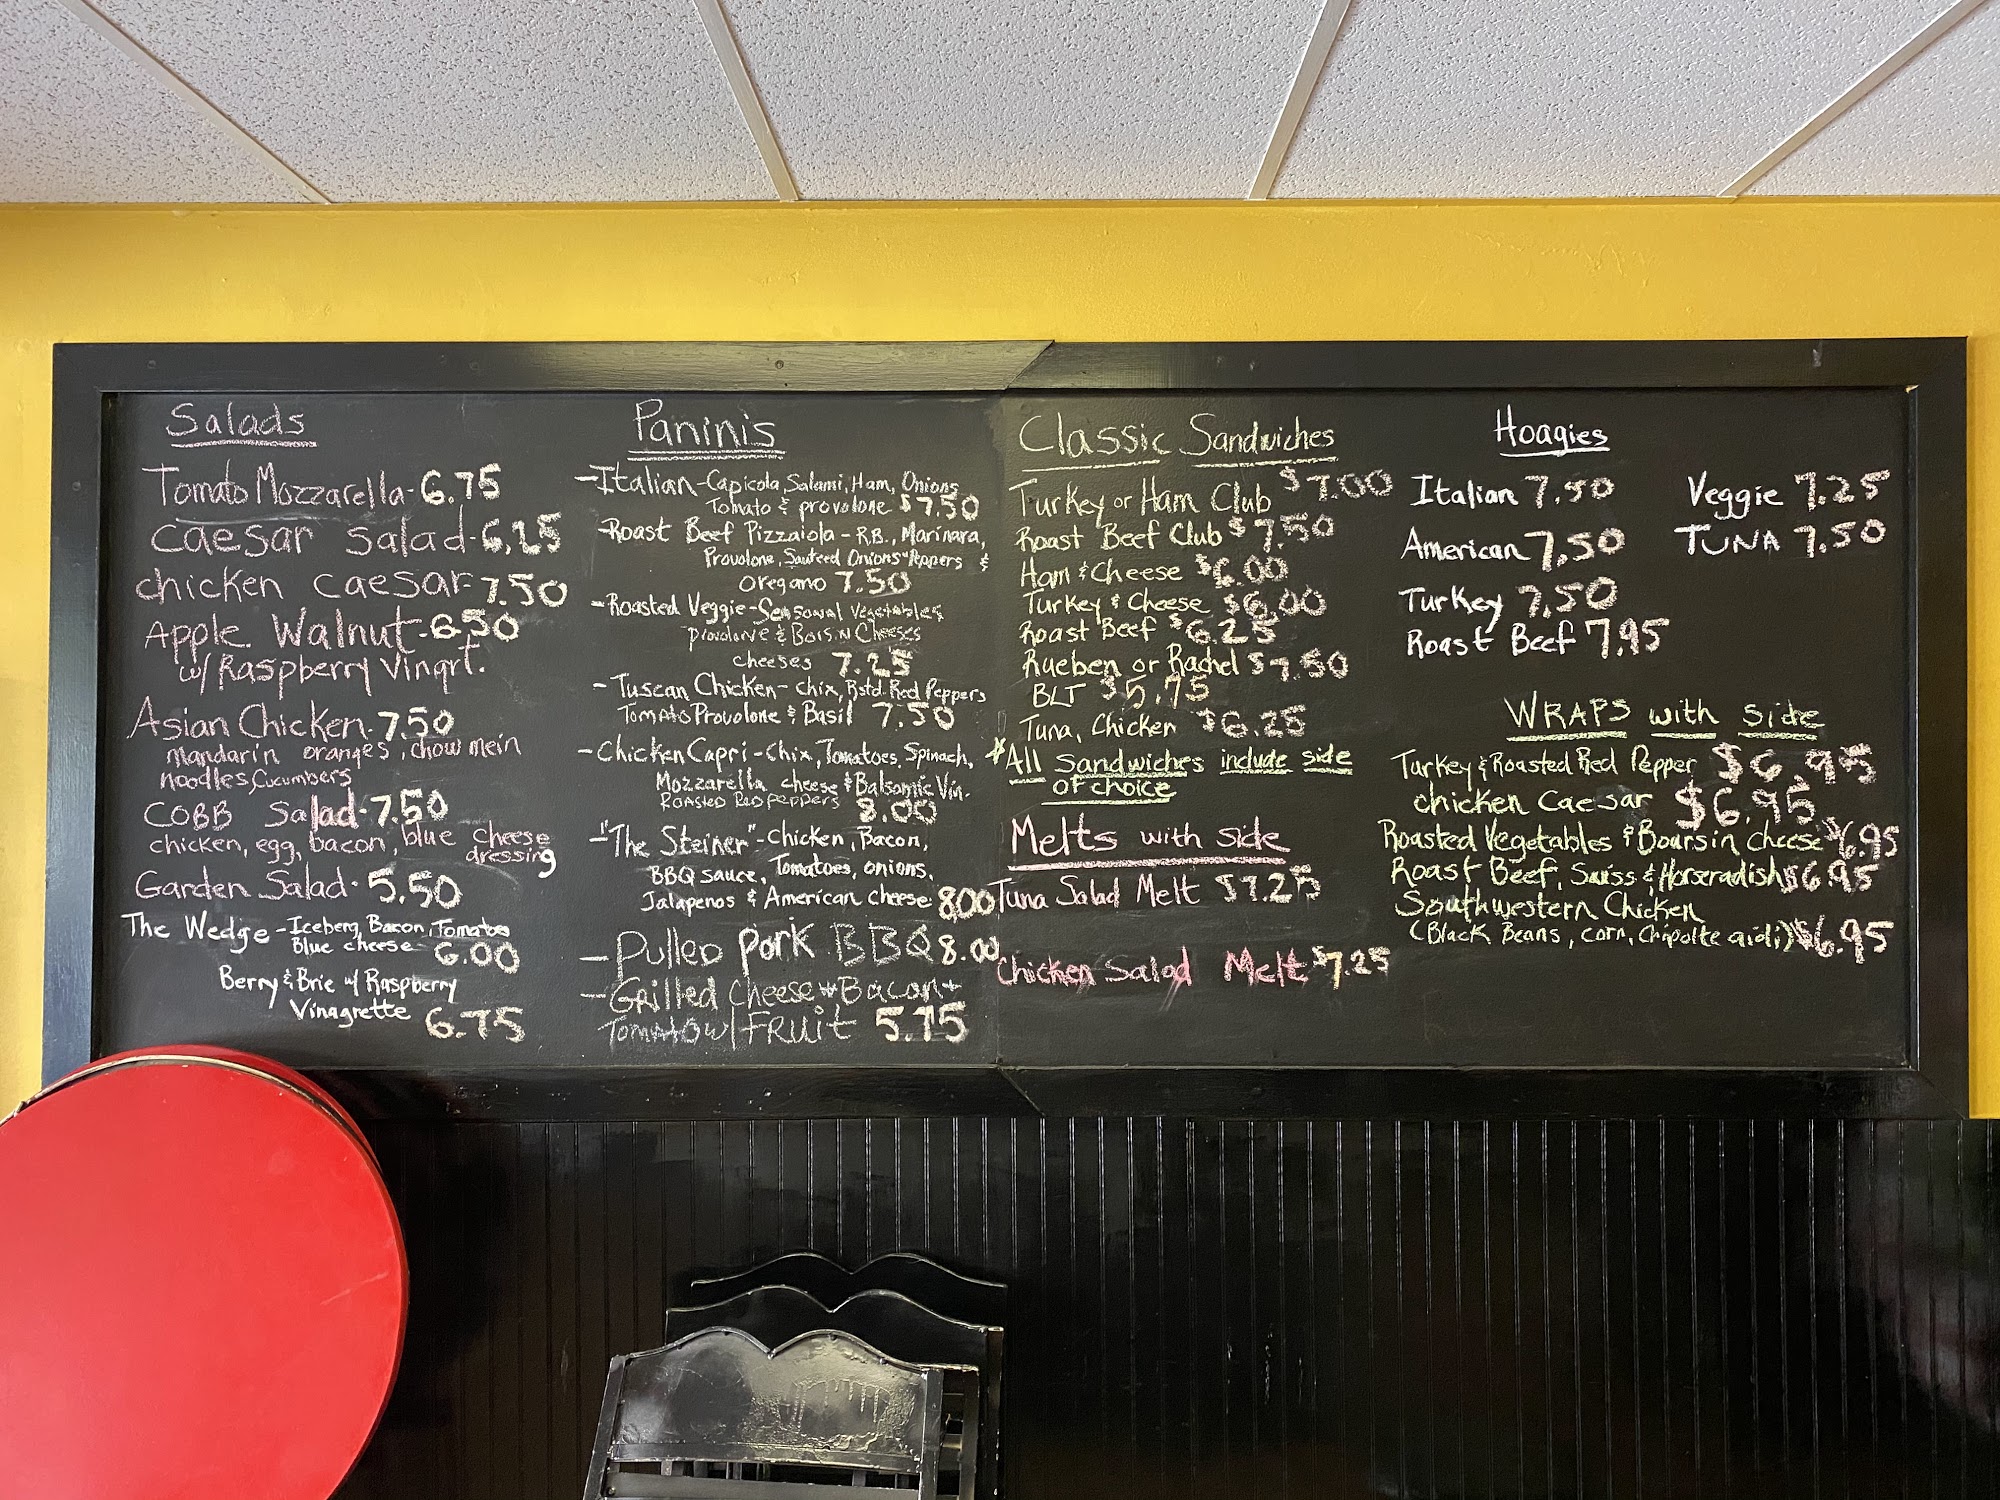 Salads
Tomato Mozzarella - 6.75
Caesar Salad - 6.25
chicken caesar - 7.50
Apple Walnut - 6.50
w/ Raspberry Vingrt.
Asian Chicken - 7.50
mandarin oranges, chow mein
noodles, cucumbers
COBB Salad - 7.50
chicken, egg, bacon, blue cheese
dressing
Garden Salad - 5.50
The Wedge - Iceberg, Bacon, Tomatoe
Blue cheese - 6.00
Berry & Brie w/ Raspberry
Vinagrette 6.75
Paninis
- Italian - Capicola, Salami, Ham, Onions
Tomato & provolone $7.50
- Roast Beef Pizzaiola - R.B., Marinara,
Provolone, Sauteed Onions Peppers &
oregano 7.50
- Roasted Veggie - Seasonal Vegetables
provolone & Borsin Cheeses
cheeses 7.25
- Tuscan Chicken - chix, Rstd. Red Peppers
Tomato Provolone & Basil 7.50
- Chicken Capri - Chix, Tomatoes, Spinach,
Mozzarella cheese & Balsamic Vin.
Roasted Red peppers 8.00
- "The Steiner" - chicken, Bacon,
BBQ sauce, Tomatoes, onions,
Jalapenos & American cheese 8.00
- Pulled Pork BBQ 8.00
- Grilled Cheese + Bacon +
Tomato w/ FRUIT 5.75
Classic Sandwiches
Turkey or Ham Club $7.00
Roast Beef Club $7.50
Ham & Cheese $6.00
Turkey & Cheese $6.00
Roast Beef $6.25
Rueben or Rachel $7.50
BLT $5.75
Tuna, Chicken $6.25
* All sandwiches include side
of choice
Melts with side
Tuna Salad Melt $7.25
Chicken Salad Melt $7.25
Hoagies
Italian 7.50
American 7.50
Turkey 7.50
Roast Beef 7.95
Veggie 7.25
TUNA 7.50
WRAPS with side
Turkey & Roasted Red Pepper $6.95
chicken Caesar $6.95
Roasted Vegetables & Boursin cheese $6.95
Roast Beef, Swiss & Horseradish $6.95
Southwestern Chicken
(Black Beans, corn, Chipolte aioli) $6.95